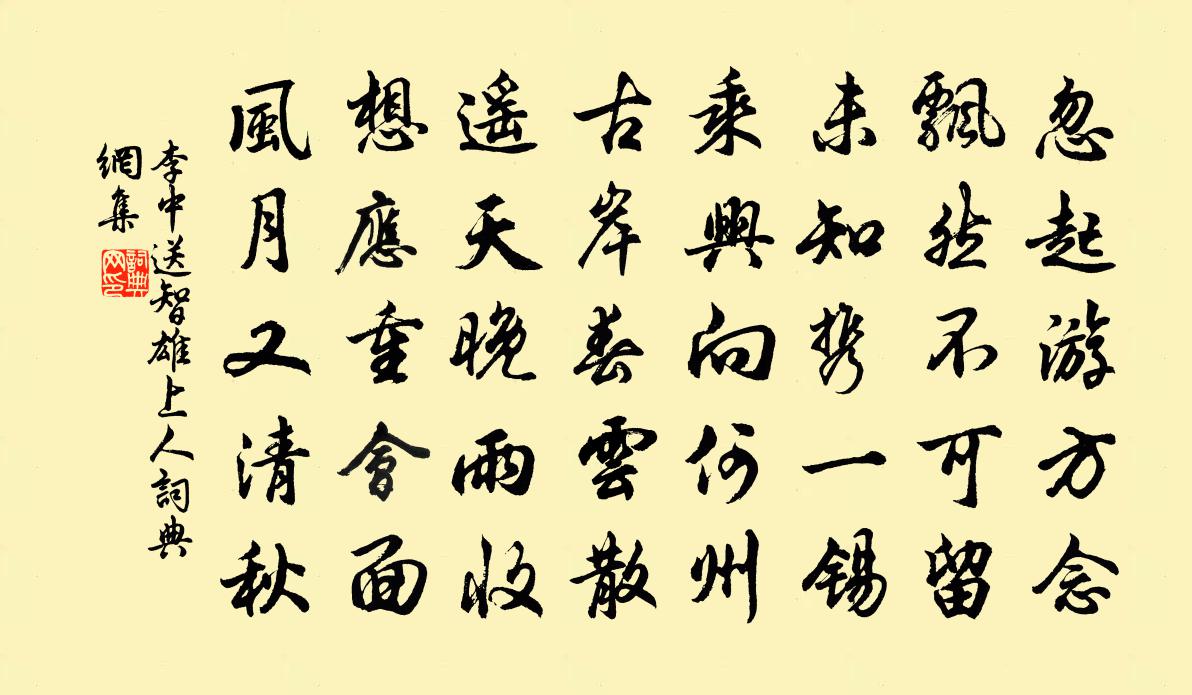 忽起游方念
飄然不可留
未知携一錫
乘興向何州
古岸春雲散
遥天晚雨收
想應重會面
風月又清秋
李中送智雄上人詞典
網集
詞典
网印